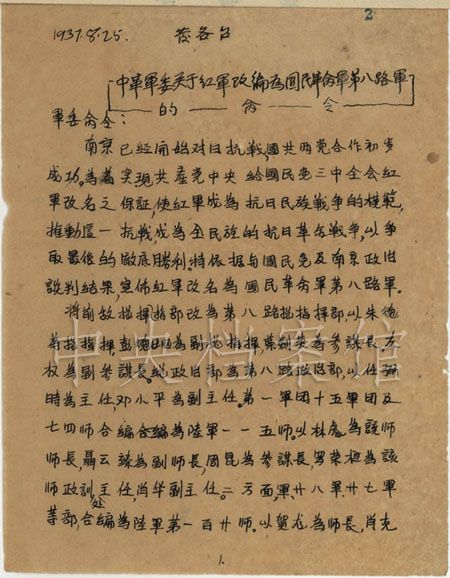 2
1937.8.25. 发各台
中革軍委关于紅軍改編為国民革命軍第八路軍
的 命 令
軍委命令：
南京已经開始对日抗戰，國共两党合作初步
成功。為着实現共產党中央給國民党三中全会紅
軍改名之保証，使紅軍成為抗日民族戰争的模範，
推動這一抗戰，成為全民族的抗日革命戰争，以争
取最後的徹底勝利。特依据与國民党及南京政府
談判結果，宣佈紅軍改名為國民革命軍第八路軍。
将前敌指揮部改為第八路总指揮部，以朱德
為总指揮，彭德懷為副总指揮，葉剑英為参謀長，左
权為副参謀長。总政治部為第八路政治部，以任弼
時為主任，邓小平為副主任。第一軍團十五軍團及
七四師合編為陸軍一一五師。以林彪為該師
師長，聶云臻為副師長，周昆為参謀長，罗荣桓為該
師政訓处主任，肖华副主任。二方面軍廿八軍廿七軍
等部，合編為陸軍第一百廿師。以贺龙為師長，肖克
1.
中央档案馆